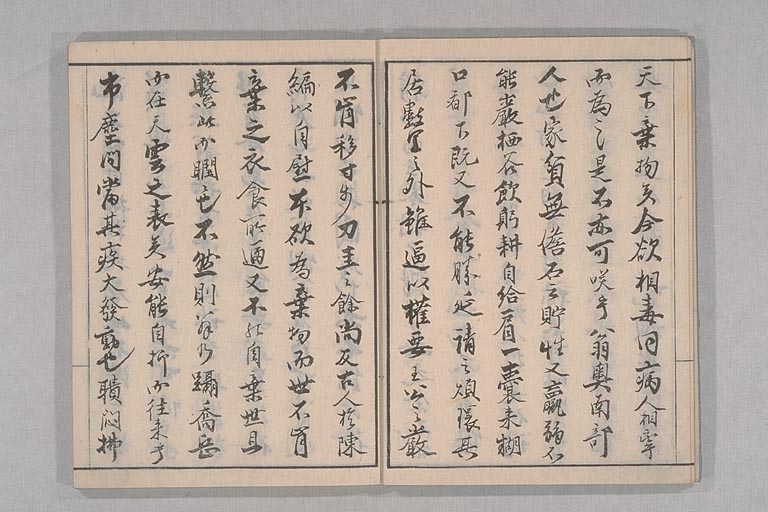 天下棄物矣今欲相毒同病人相率
而為之是不亦可咲乎翁奥南部
人也家貧無儋石之貯性又羸弱不
能巖栖谷飲躬耕自給肩一嚢来糊
口都下既又不能勝延請之煩環其
居數里之外雖逼以權要王公之嚴
不肯移寸歩刀圭之餘尚友古人於陳
編以自慰本欲為棄物而世不肯
棄之衣食所逼又不能自棄世且
繫此而瞯也不然則翁乃躡喬岳
而在天雲之表矣安能自抑而往来乎
市塵間當其疾大發動也聵悶拂